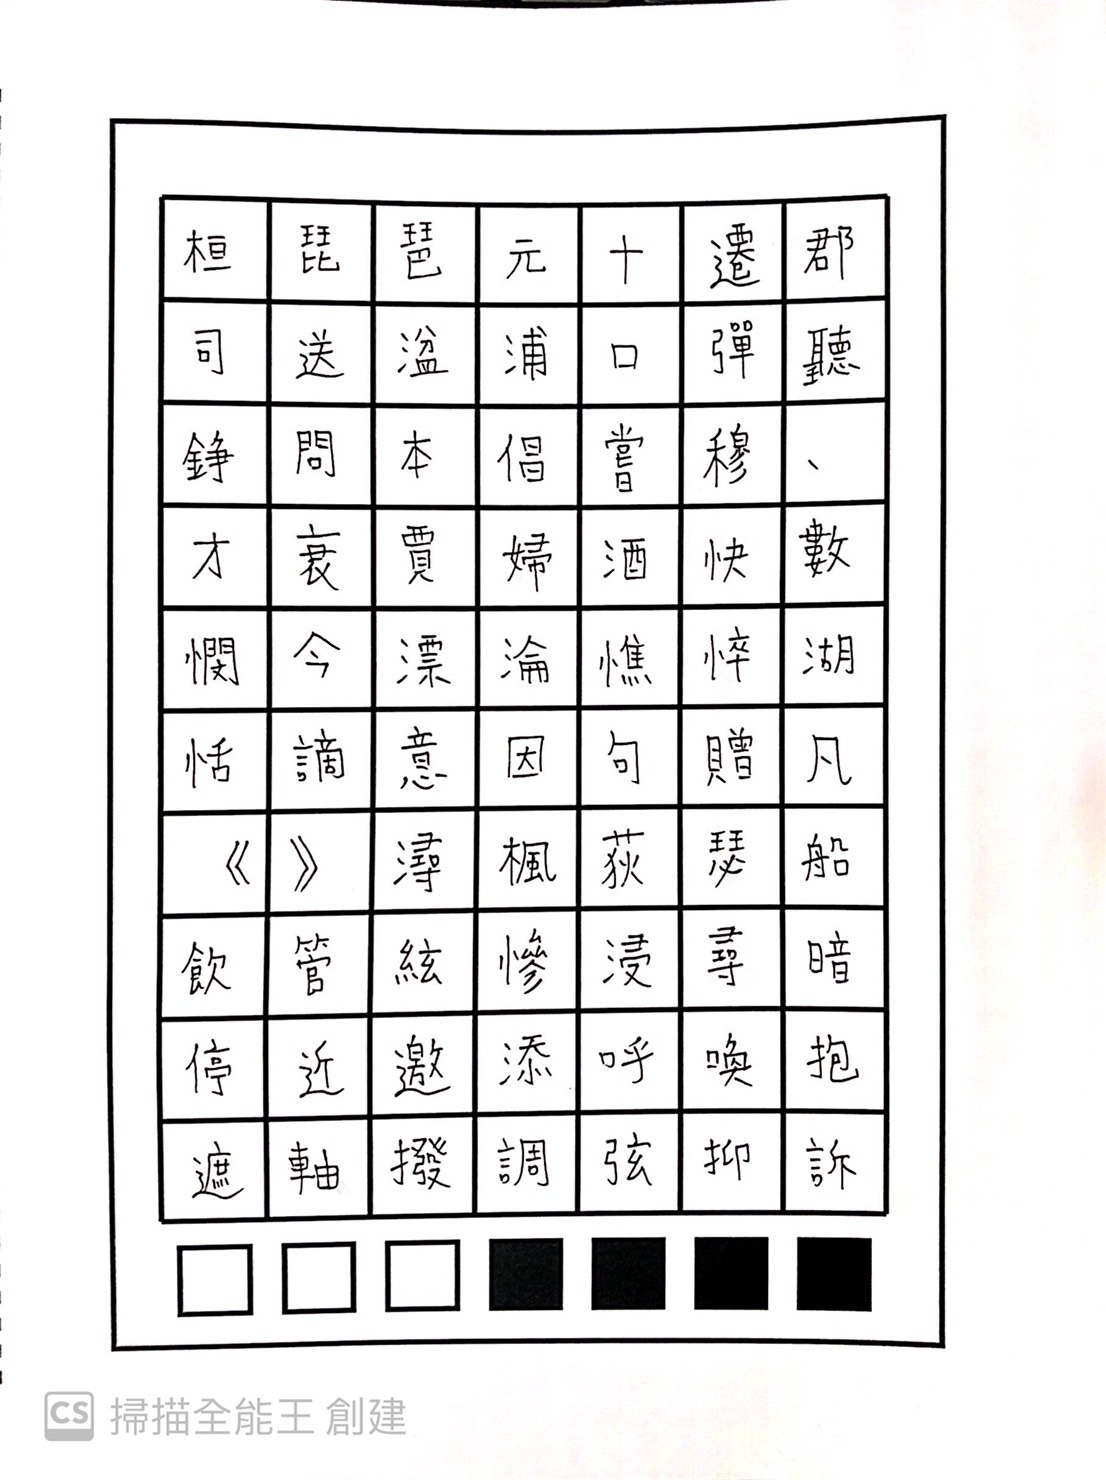 桓琵琶元十遷郡
司送湓浦口彈聽
錚問本倡嘗穆、
才衰賈婦酒快數
憫今漂淪憔悴湖
恬謫意因句贈凡
《》潯楓荻瑟船
飲管絃慘浸尋暗
停近邀添呼喚抱
遮軸撥調弦抑訴
CS 掃描全能王 創建